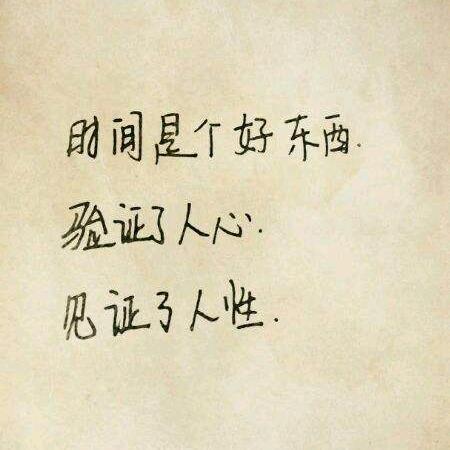 时间是个好东西.
验证了人心.
见证了人性.